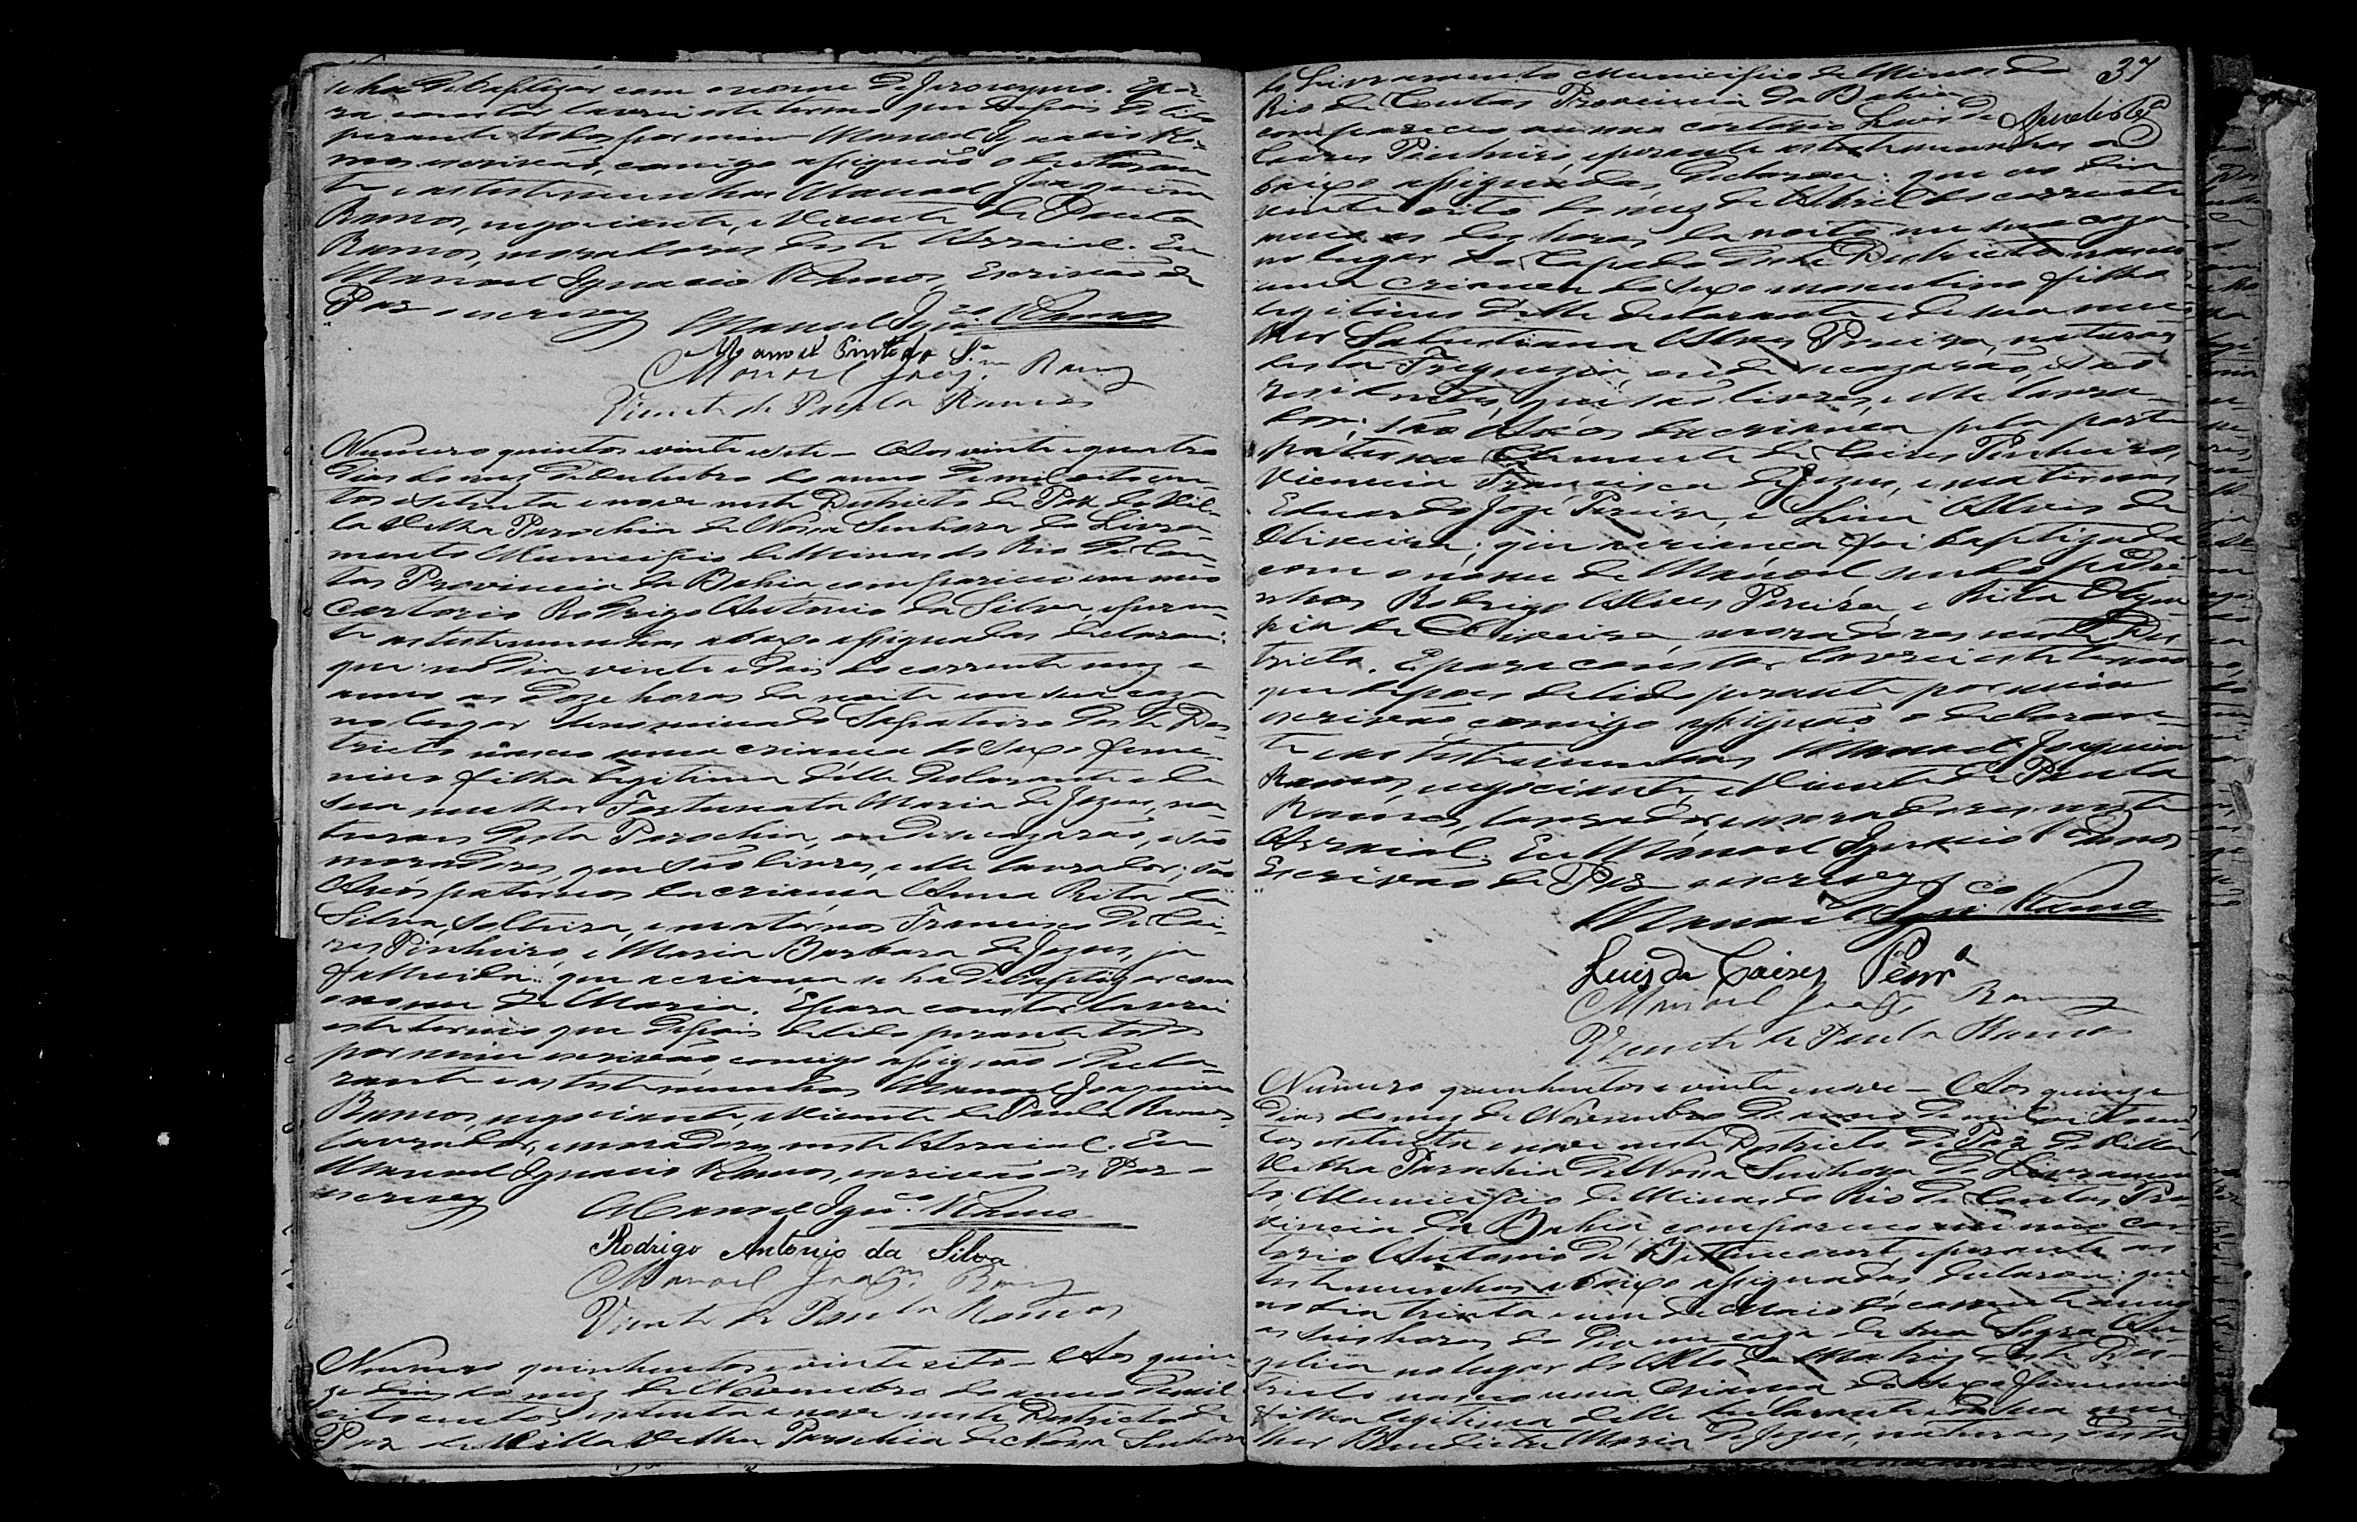 se ha de baptizar com o nome de Jeronymo. Epa-
ra constar lavrei este termo que depois de lido
perante todos por mim Manoel Ignacio Ra-
mos escrivão, comigo assignão o declaran
te e as testemunhas Manoel Joaquim
Ramos, negociante, e Vicente de Paula
Ramos, moradores deste Arraial. Eu
Manoel Ignacio Ramos, Escrivão de
Paz o escrevy
Manoel Ign.co Ramos
Manoel Pinto da S.a
Manoel Joaq.m Ramos
Vicente de Paula Ramos
Numero quintos e vinte e sete - Aos vinte e quatro
dias do mez de Outubro do anno de mil oito cen-
tos e setenta e nove neste Districto de Paz da Vil-
la Velha Parochia de Nossa Senhora do Livra-
mento Municipio de Minas do Rio de Con-
tas Provincia da Bahia compareceu em meu
Cartorio Rodrigo Antonio da Silva, e peran-
te as testemunhas abaixo assignadas declarou:
que no dia vinte e dois do corrente mez e
anno as doze horas da noite em sua caza
no lugar denominado Sapateiro deste Dis-
tricto nasceu uma criança do sexo femi-
nino filha legitima delle declarante e de
sua mulher Fortunata Maria de Jezus, na-
turaes desta Parochia, onde se cazarão, e são
moradores, que são livres, e elle lavrador; são
Avós paternos da criança Anna Rita da
Silva, solteira, e maternos Francisco de Cai-
res Pinheiro, e Maria Barbara de Jezus, ja
fallecida; que a criança se ha de baptizar com
o nome de Maria. E para constar lavrei
este termo que depois de lido perante todos
por mim escrivão, comigo assignão o decla-
rante e as testemunhas Manoel Joaquim
Ramos, negociante, e Vicente de Paula Ramos,
lavrador, e moradores neste Arraial. Eu
Manoel Ignacio Ramos, escrivão de Paz o
escrevy
Manoel Ign.co Ramos
Rodrigo Antonio da Silva
Manoel Joaq.m Ramos
Vicente de Paula Ramos
Numero quinhentos e vinte e oito - Aos quin-
ze dias do mez de Novembro do anno de mil
oito centos e setenta e nove neste Districto de
Paz da Villa Velha Parochia de Nossa Senhora
37
do Livramento Municipio de Minas do
Rio de Contas Provincia da Bahia
compareceu em meu cartorio Luis de
Caires Pinheiro, e perante as testemunhas a
baixo assignadas, declarou: que no dia
vinte oito do mez de Abril do corrente
anno as dez horas da noite em sua caza
no lugar da Capada deste Districto nasceu
uma criança do sexo masculino filho
legitimo delle declarante e de sua mu-
lher Salustiana Alves Pereira, naturaes
desta Freguezia, onde se cazarão, e são
residentes, que são livres, e elle lavra-
dor; são Avós da criança pela parte
paterna Clemente de Caires Pinheiro,
Vicencia Francisca de Jezus, e maternos
Eduardo José Pereira, e Lina Alves de
Oliveira; que a criança foi baptizada
com o nome de Manoel sendo padri-
nhos Rodrigo Alves Pereira, e Rita Olym-
pia de Oliveira moradores neste Dis-
tricto. E para constar lavrei este termo
que depois de lido perante por mim
escrivão comigo assignão o declaran-
te e as testemunhas Manoel Joaquim
Ramos, negociante, e Vicente de Paula
Ramos, lavrador, e moradores neste
Arraial. Eu Manoel Ignacio Ramos
Escrivão de Paz o escrevy
Manoel Ign.co Ramos
Luis de Caires Penr.o
Manoel Joaq.m Ramos
Vicente de Paula Ramos
Numero quinhentos e vinte e nove - Aos quinze
dias do mez de Novembro do anno de mil oito cen-
tos e setenta e nove neste Districto de Paz da Villa
Velha Parochia de Nossa Senhora do Livramen-
to Municipio de Minas do Rio de Contas, Pro-
vincia da Bahia compareceu em meu car-
torio Antonio de Bitencourt, e perante as
testemunhas abaixo assignadas, declarou: que
no dia trinta e um de Maio do corrente anno
as seis horas do dia em caza de sua Sogra An-
gelica no lugar do Alto da Matriz deste Dis-
tricto nasceu uma criança do sexo feminino
filha legitima delle declarante e de sua mu-
lher Benedicta Maria de Jezus, naturaes desta